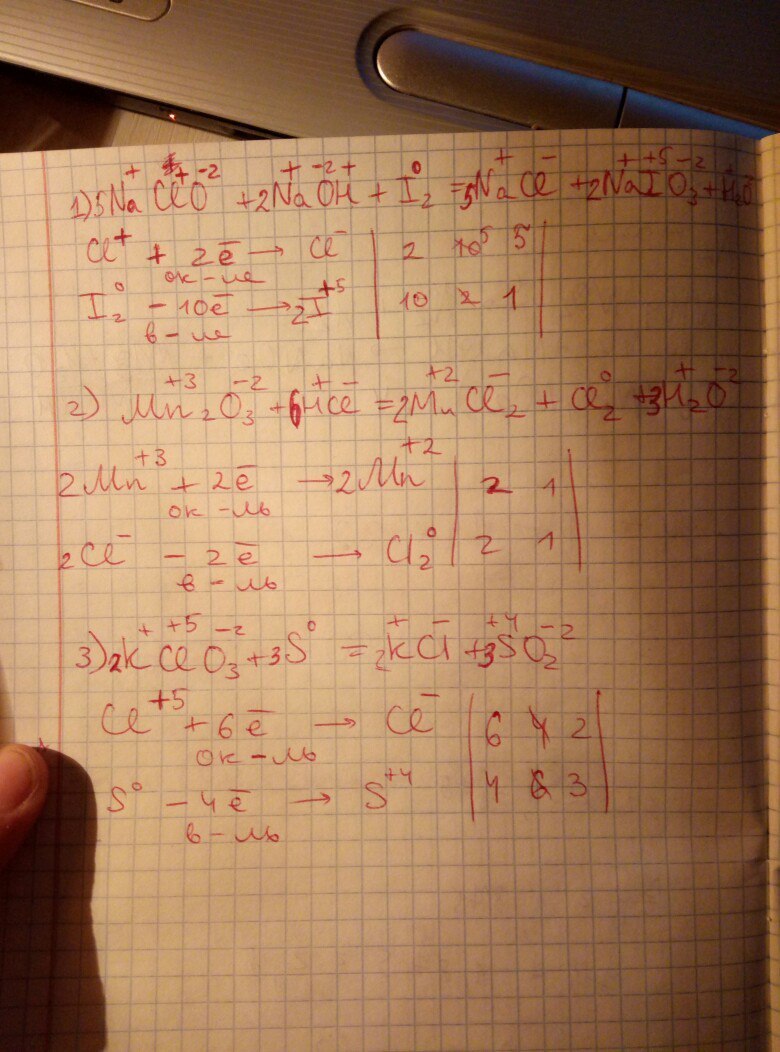 1) 5Na⁺Cl⁺O⁻² + 2Na⁺O⁻²H⁺ + I₂⁰ = 5Na⁺Cl⁻ + 2Na⁺I⁺⁵O₃⁻² + H₂O
Cl⁺ + 2ē → Cl⁻ | 2 10 5 5 |
ок-ле
I₂⁰ - 10ē → 2I⁺⁵ | 10 2 1 |
в-ле
2) Mn₂⁺³O₃⁻² + 6H⁺Cl⁻ = 2Mn⁺²Cl₂⁻ + Cl₂⁰ + 3H₂⁺O⁻²
2Mn⁺³ + 2ē → 2Mn⁺² | 2 1 |
ок-ль
2Cl⁻ - 2ē → Cl₂⁰ | 2 1 |
в-ль
3) 2K⁺Cl⁺⁵O₃⁻² + 3S⁰ = 2K⁺Cl⁻ + 3S⁺⁴O₂⁻²
Cl⁺⁵ + 6ē → Cl⁻ | 6 4 2 |
ок-ль
S⁰ - 4ē → S⁺⁴ | 4 6 3 |
в-ль